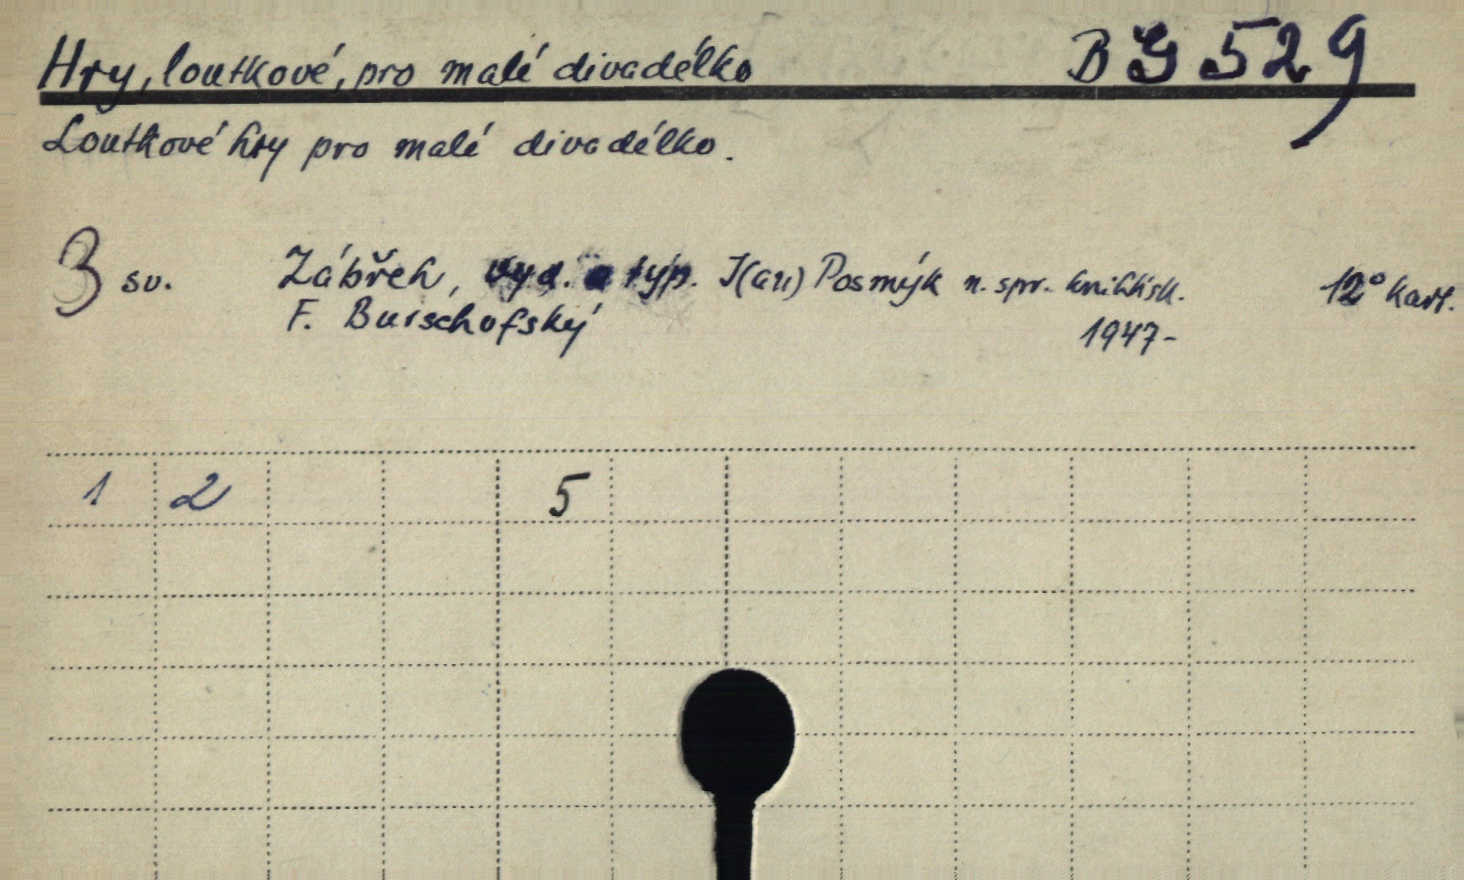 Hry, loutkové, pro malé divadélko BG 529
Loutkové hry pro malé divadélko.
3 sv. Zábřeh, vyd. a typ. J(an) Posmýk n. spr. knihtisk. 12° kart.
F. Burschofský 1947-
1 2 5